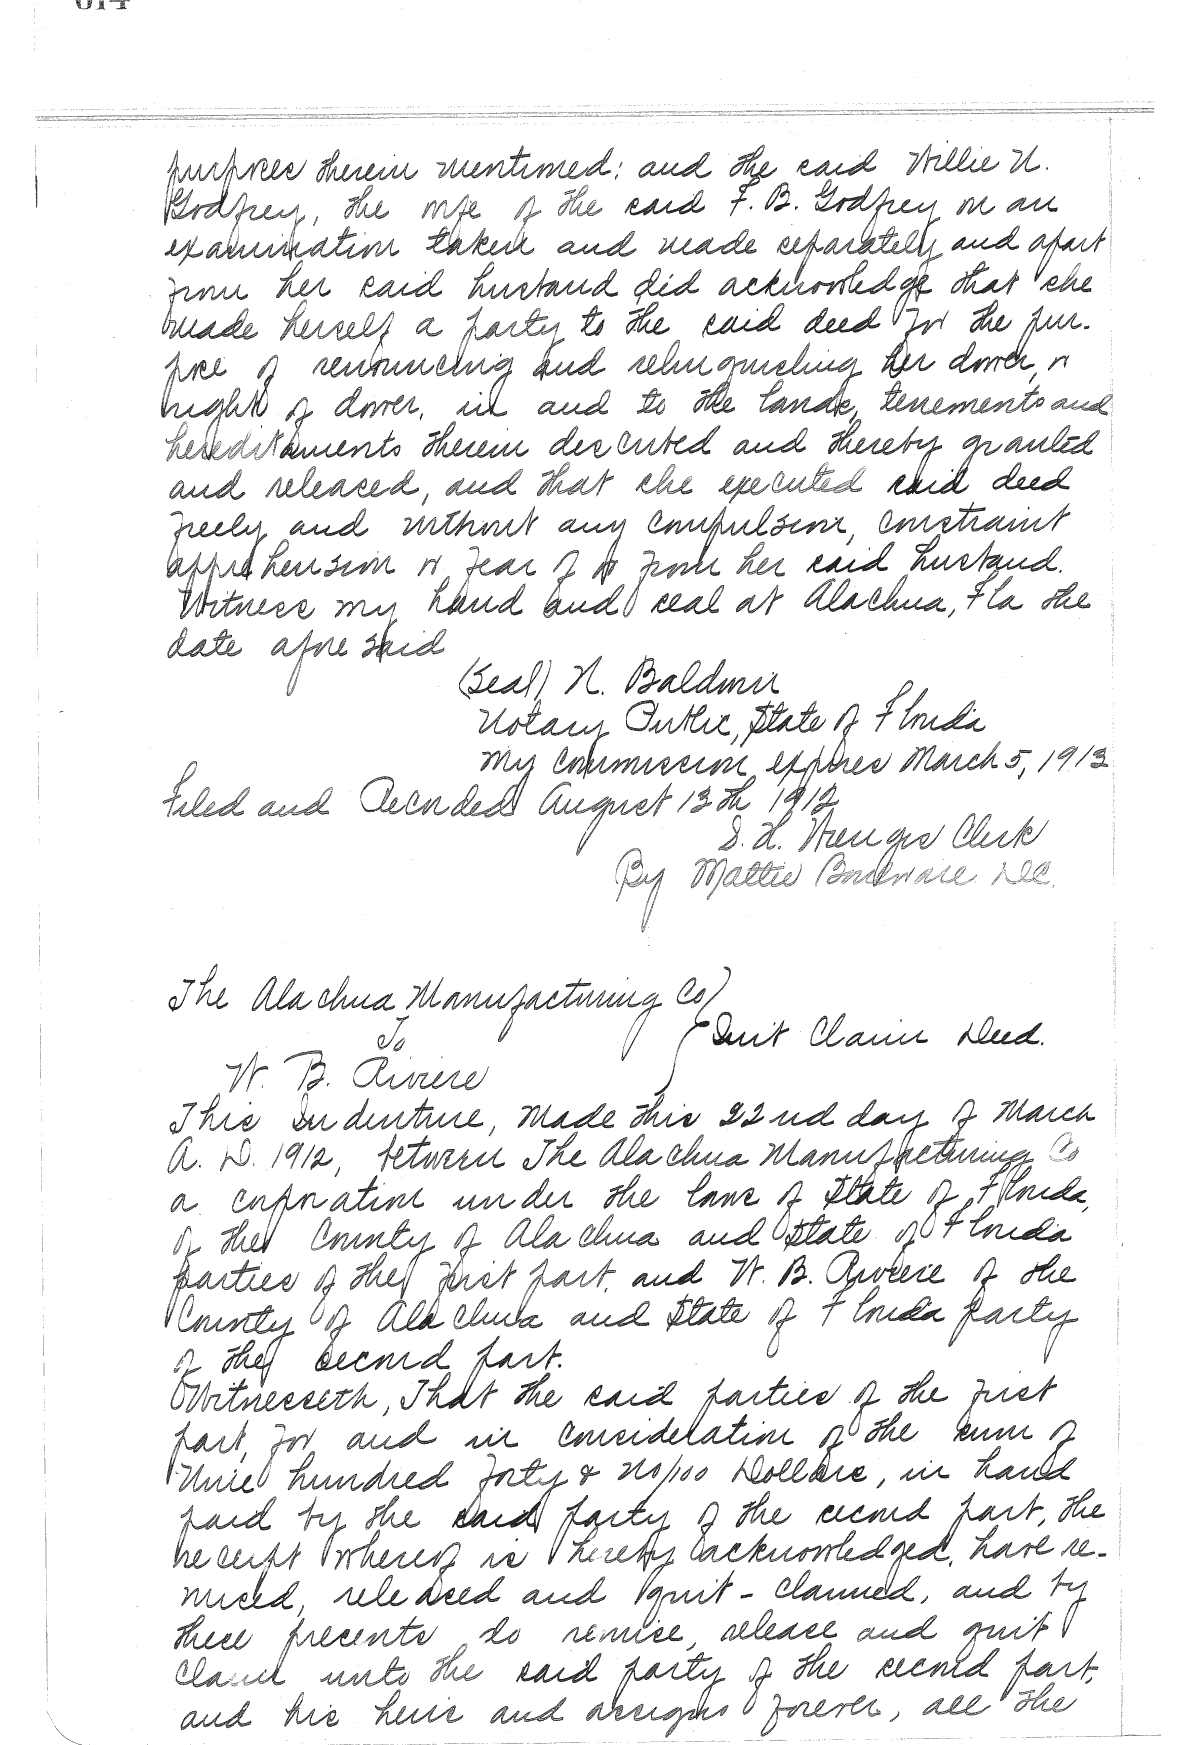 614
purposes therein mentioned; and the said Willie N.
Godfrey, the wife of the said F. B. Godfrey on an
examination taken and made separately and apart
from her said husband did acknowledge that she
made herself a party to the said deed for the pur-
pose of renouncing and relinquishing her dower, or
right of dower, in and to the lands, tenements and
hereditaments therein described and thereby granted
and released, and that she executed said deed
freely and without any compulsion, constraint
apprehension or fear of or from her said husband.
Witness my hand and seal at Alachua, Fla the
date afore said
(Seal) N. Baldwin
Notary Public, State of Florida
My commission expires March 5, 1913
Filed and Recorded August 13th 1912
S. H. Wienges Clerk
By Mattie D.C.
The Alachua Manufacturing Co
To
Quit Claim Deed.
W. B. Riviere
This Indenture, Made this 22nd day of March
A. D. 1912, between The Alachua Manufacturing Co
a corporation under the laws of State of Florida,
of the County of Alachua and State of Florida
parties of the first part, and W. B. Riviere of the
County of Alachua and State of Florida party
of the second part.
Witnesseth, That the said parties of the first
part, for and in consideration of the sum of
Nine hundred forty & no/100 Dollars, in hand
paid by the said party of the second part, the
receipt whereof is hereby acknowledged, have re-
mised, released and quit-claimed, and by
these presents do remise, release and quit
claim unto the said party of the second part,
and his heirs and assigns forever, all the